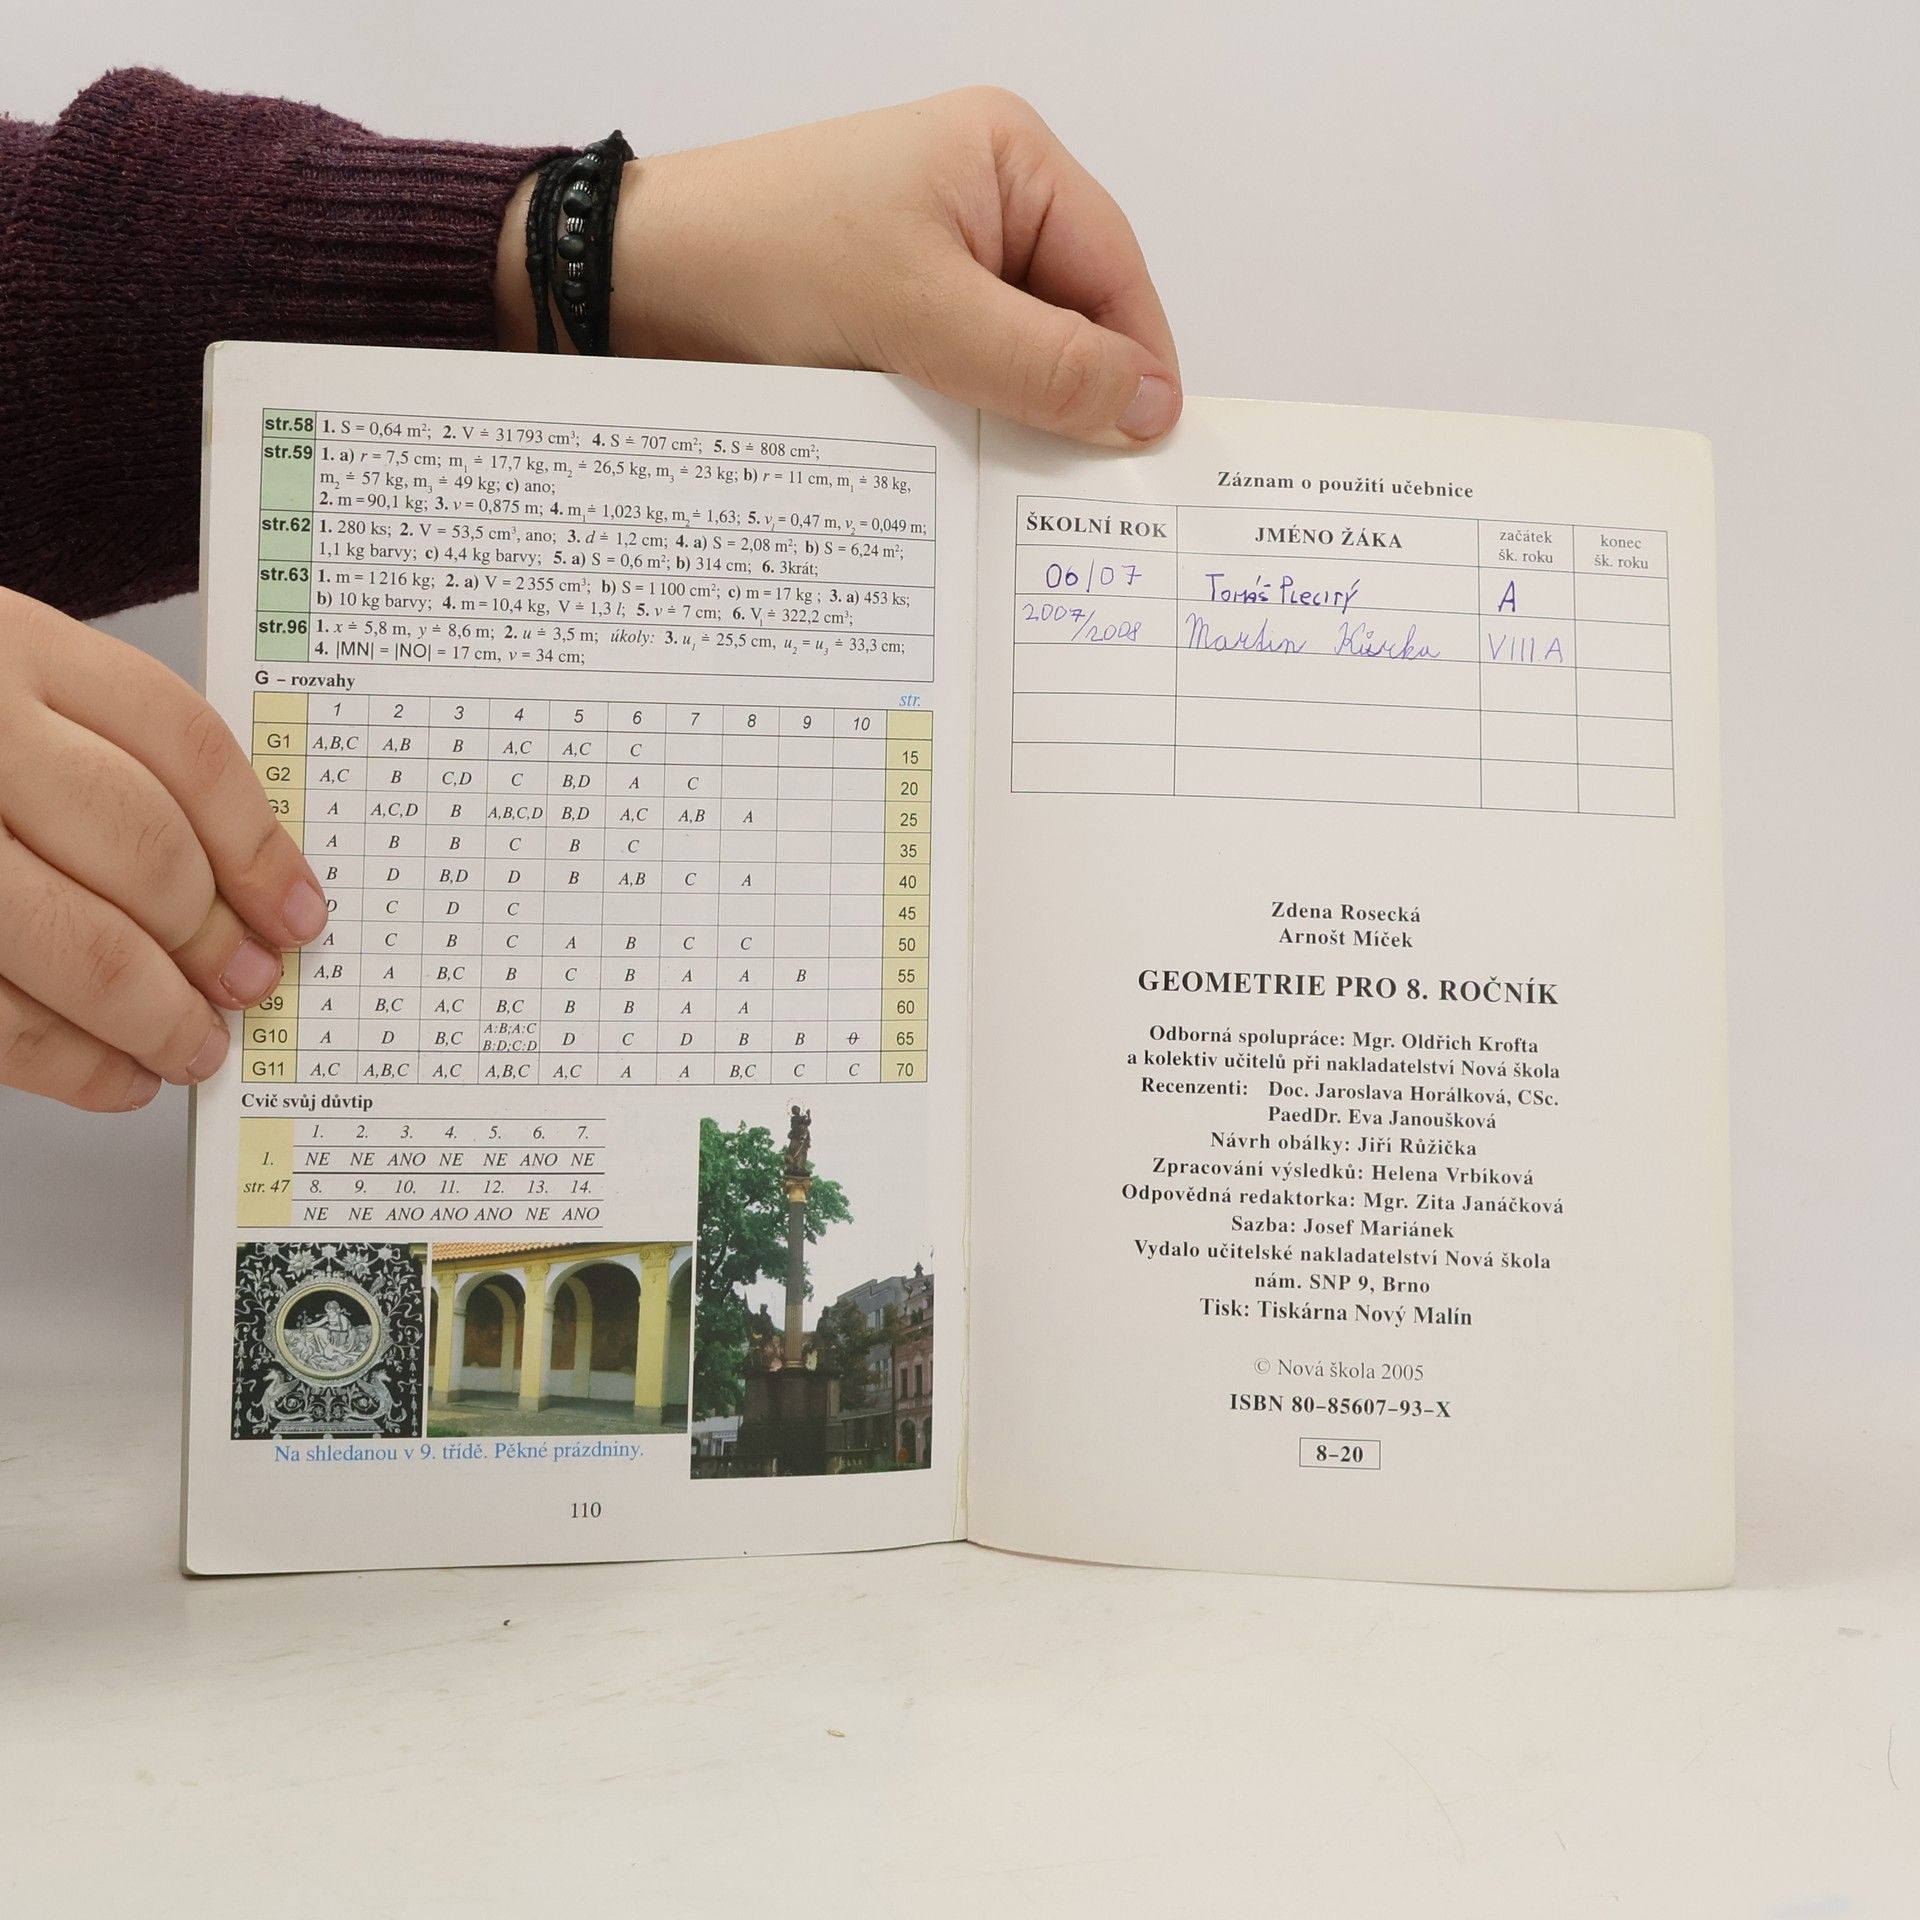 str.58 1. S = 0,64 m²; 2. V ≐ 31 793 cm³; 4. S ≐ 707 cm²; 5. S ≐ 808 cm²;
str.59 1. a) r = 7,5 cm; m₁ ≐ 17,7 kg, m₂ ≐ 26,5 kg, m₃ ≐ 23 kg; b) r = 11 cm, m₁ ≐ 38 kg,
m₂ ≐ 57 kg, m₃ ≐ 49 kg; c) ano;
2. m = 90,1 kg; 3. v = 0,875 m; 4. m₁ ≐ 1,023 kg, m₂ ≐ 1,63; 5. v₁ = 0,47 m, v₂ = 0,049 m;
str.62 1. 280 ks; 2. V = 53,5 cm³, ano; 3. d ≐ 1,2 cm; 4. a) S = 2,08 m²; b) S = 6,24 m²;
1,1 kg barvy; c) 4,4 kg barvy; 5. a) S = 0,6 m²; b) 314 cm; 6. 3krát;
str.63 1. m = 1 216 kg; 2. a) V = 2 355 cm³; b) S = 1 100 cm²; c) m = 17 kg ; 3. a) 453 ks;
b) 10 kg barvy; 4. m = 10,4 kg, V ≐ 1,3 l; 5. v ≐ 7 cm; 6. V₁ ≐ 322,2 cm³;
str.96 1. x ≐ 5,8 m, y ≐ 8,6 m; 2. u ≐ 3,5 m; úkoly: 3. u₁ ≐ 25,5 cm, u₂ = u₃ ≐ 33,3 cm;
4. |MN| = |NO| = 17 cm, v = 34 cm;
G – rozvahy str.
1 2 3 4 5 6 7 8 9 10
G1 A,B,C A,B B A,C A,C C 15
G2 A,C B C,D C B,D A C 20
G3 A A,C,D B A,B,C,D B,D A,C A,B A 25
A B B C B C 35
B D B,D D B A,B C A 40
D C D C 45
A C B C A B C C 50
A,B A B,C B C B A A B 55
G9 A B,C A,C B,C B B A A 60
G10 A D B,C A:B;A:C B:D;C:D D C D B B 0 65
G11 A,C A,B,C A,C A,B,C A,C A A B,C C C 70
Cvič svůj důvtip
1. 2. 3. 4. 5. 6. 7.
1. NE NE ANO NE NE ANO NE
str. 47 8. 9. 10. 11. 12. 13. 14.
NE NE ANO ANO ANO NE ANO
Na shledanou v 9. třídě. Pěkné prázdniny.
110
Záznam o použití učebnice
ŠKOLNÍ ROK JMÉNO ŽÁKA začátek šk. roku konec šk. roku
06/07 Tomáš Plecitý A
2007/2008 Martin Kůrka VIII.A
Zdena Rosecká
Arnošt Míček
GEOMETRIE PRO 8. ROČNÍK
Odborná spolupráce: Mgr. Oldřich Krofta
a kolektiv učitelů při nakladatelství Nová škola
Recenzenti: Doc. Jaroslava Horálková, CSc.
PaedDr. Eva Janoušková
Návrh obálky: Jiří Růžička
Zpracování výsledků: Helena Vrbíková
Odpovědná redaktorka: Mgr. Zita Janáčková
Sazba: Josef Mariánek
Vydalo učitelské nakladatelství Nová škola
nám. SNP 9, Brno
Tisk: Tiskárna Nový Malín
© Nová škola 2005
ISBN 80–85607–93–X
8–20